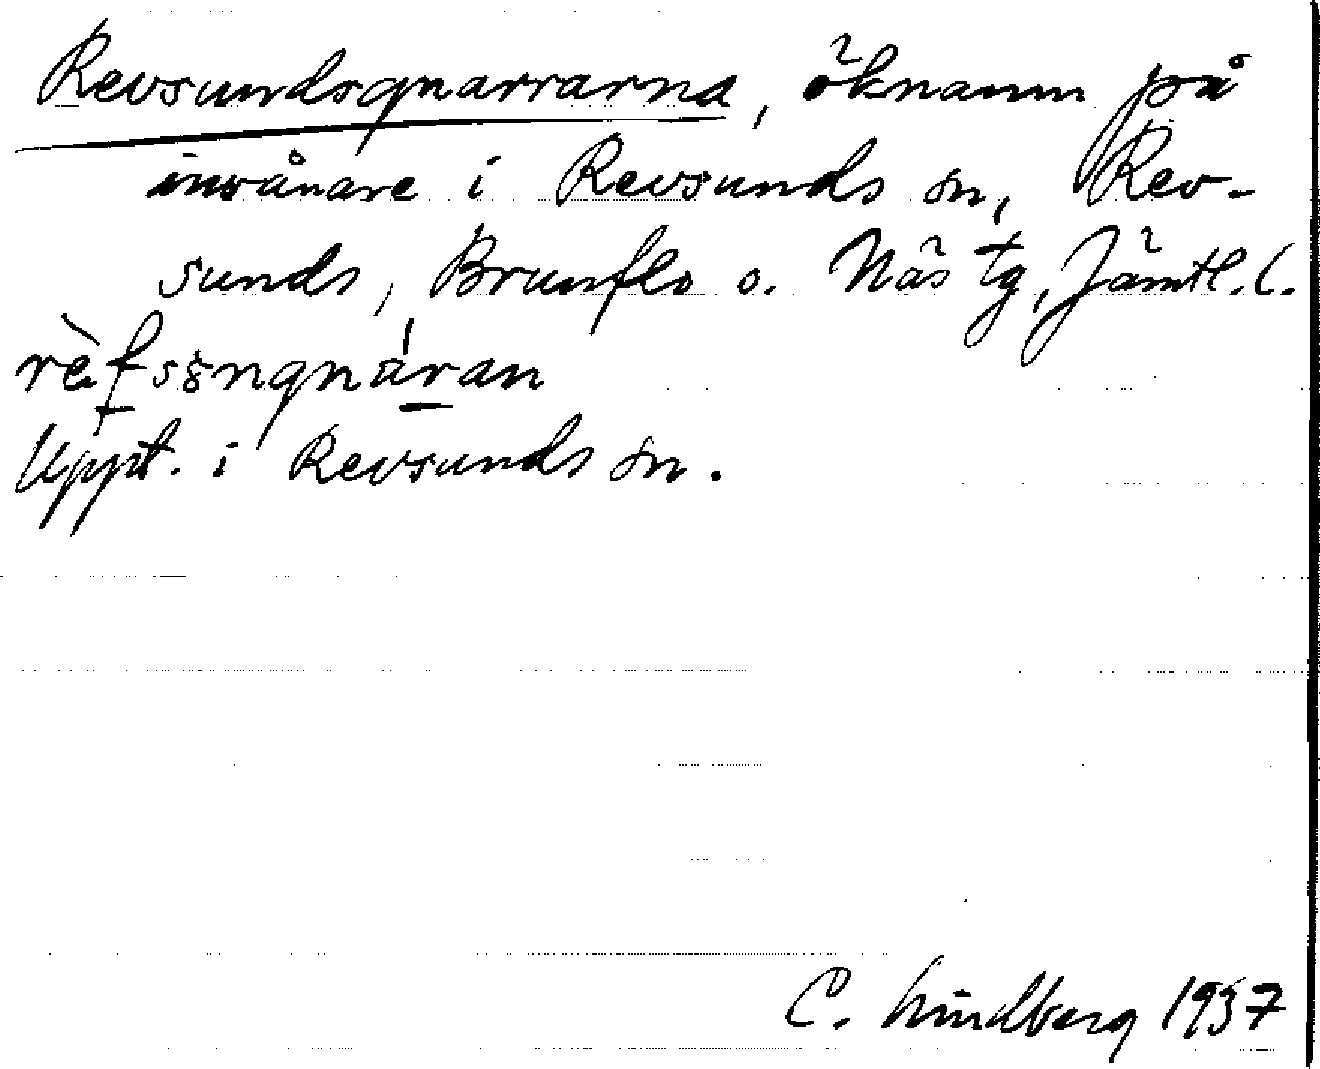 Revsundsgnarrarna, öknamn på
invånare i Revsunds sn, Rev-
sunds, Brunflo o. Näs tg, Jämtl. l.
Uppt. i Revsunds sn.
C. Lindberg 1937